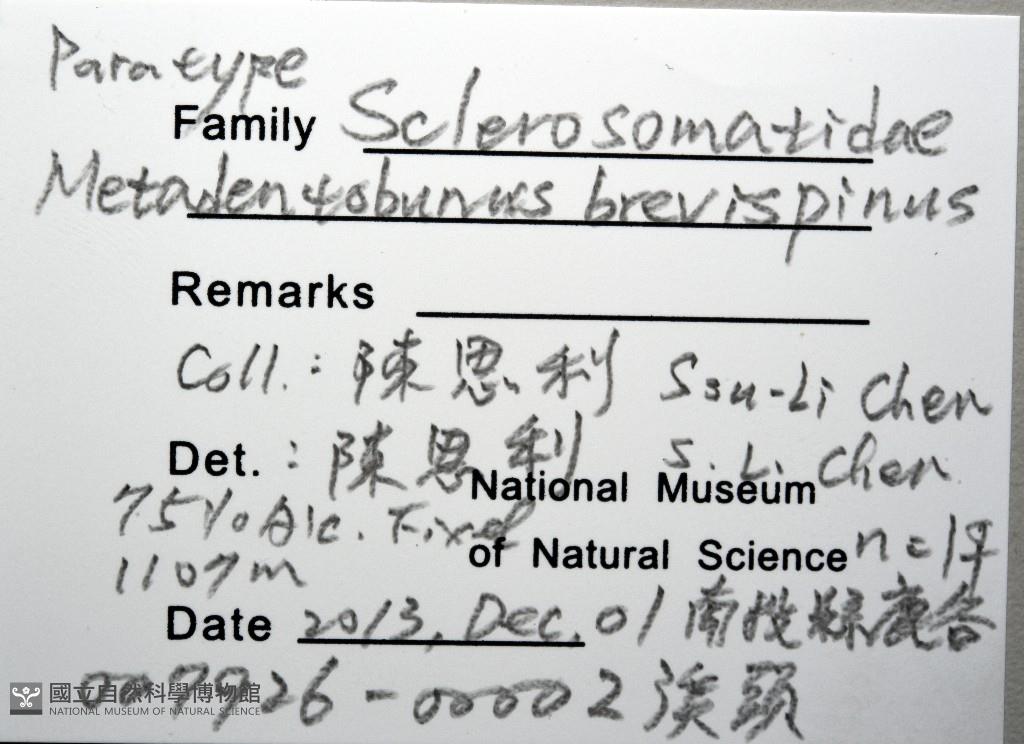 Paratype
Family Sclerosomatidae
Metadentobunus brevispinus
Remarks
Coll.: 陳思利 Ssu-Li Chen
Det.: 陳思利 S. Li Chen
National Museum
75% Alc. Fixed
of Natural Science n=1♀
1107m
Date 2013, Dec, 01 南投縣鹿谷
007926-00002 溪頭
國立自然科學博物館
NATIONAL MUSEUM OF NATURAL SCIENCE